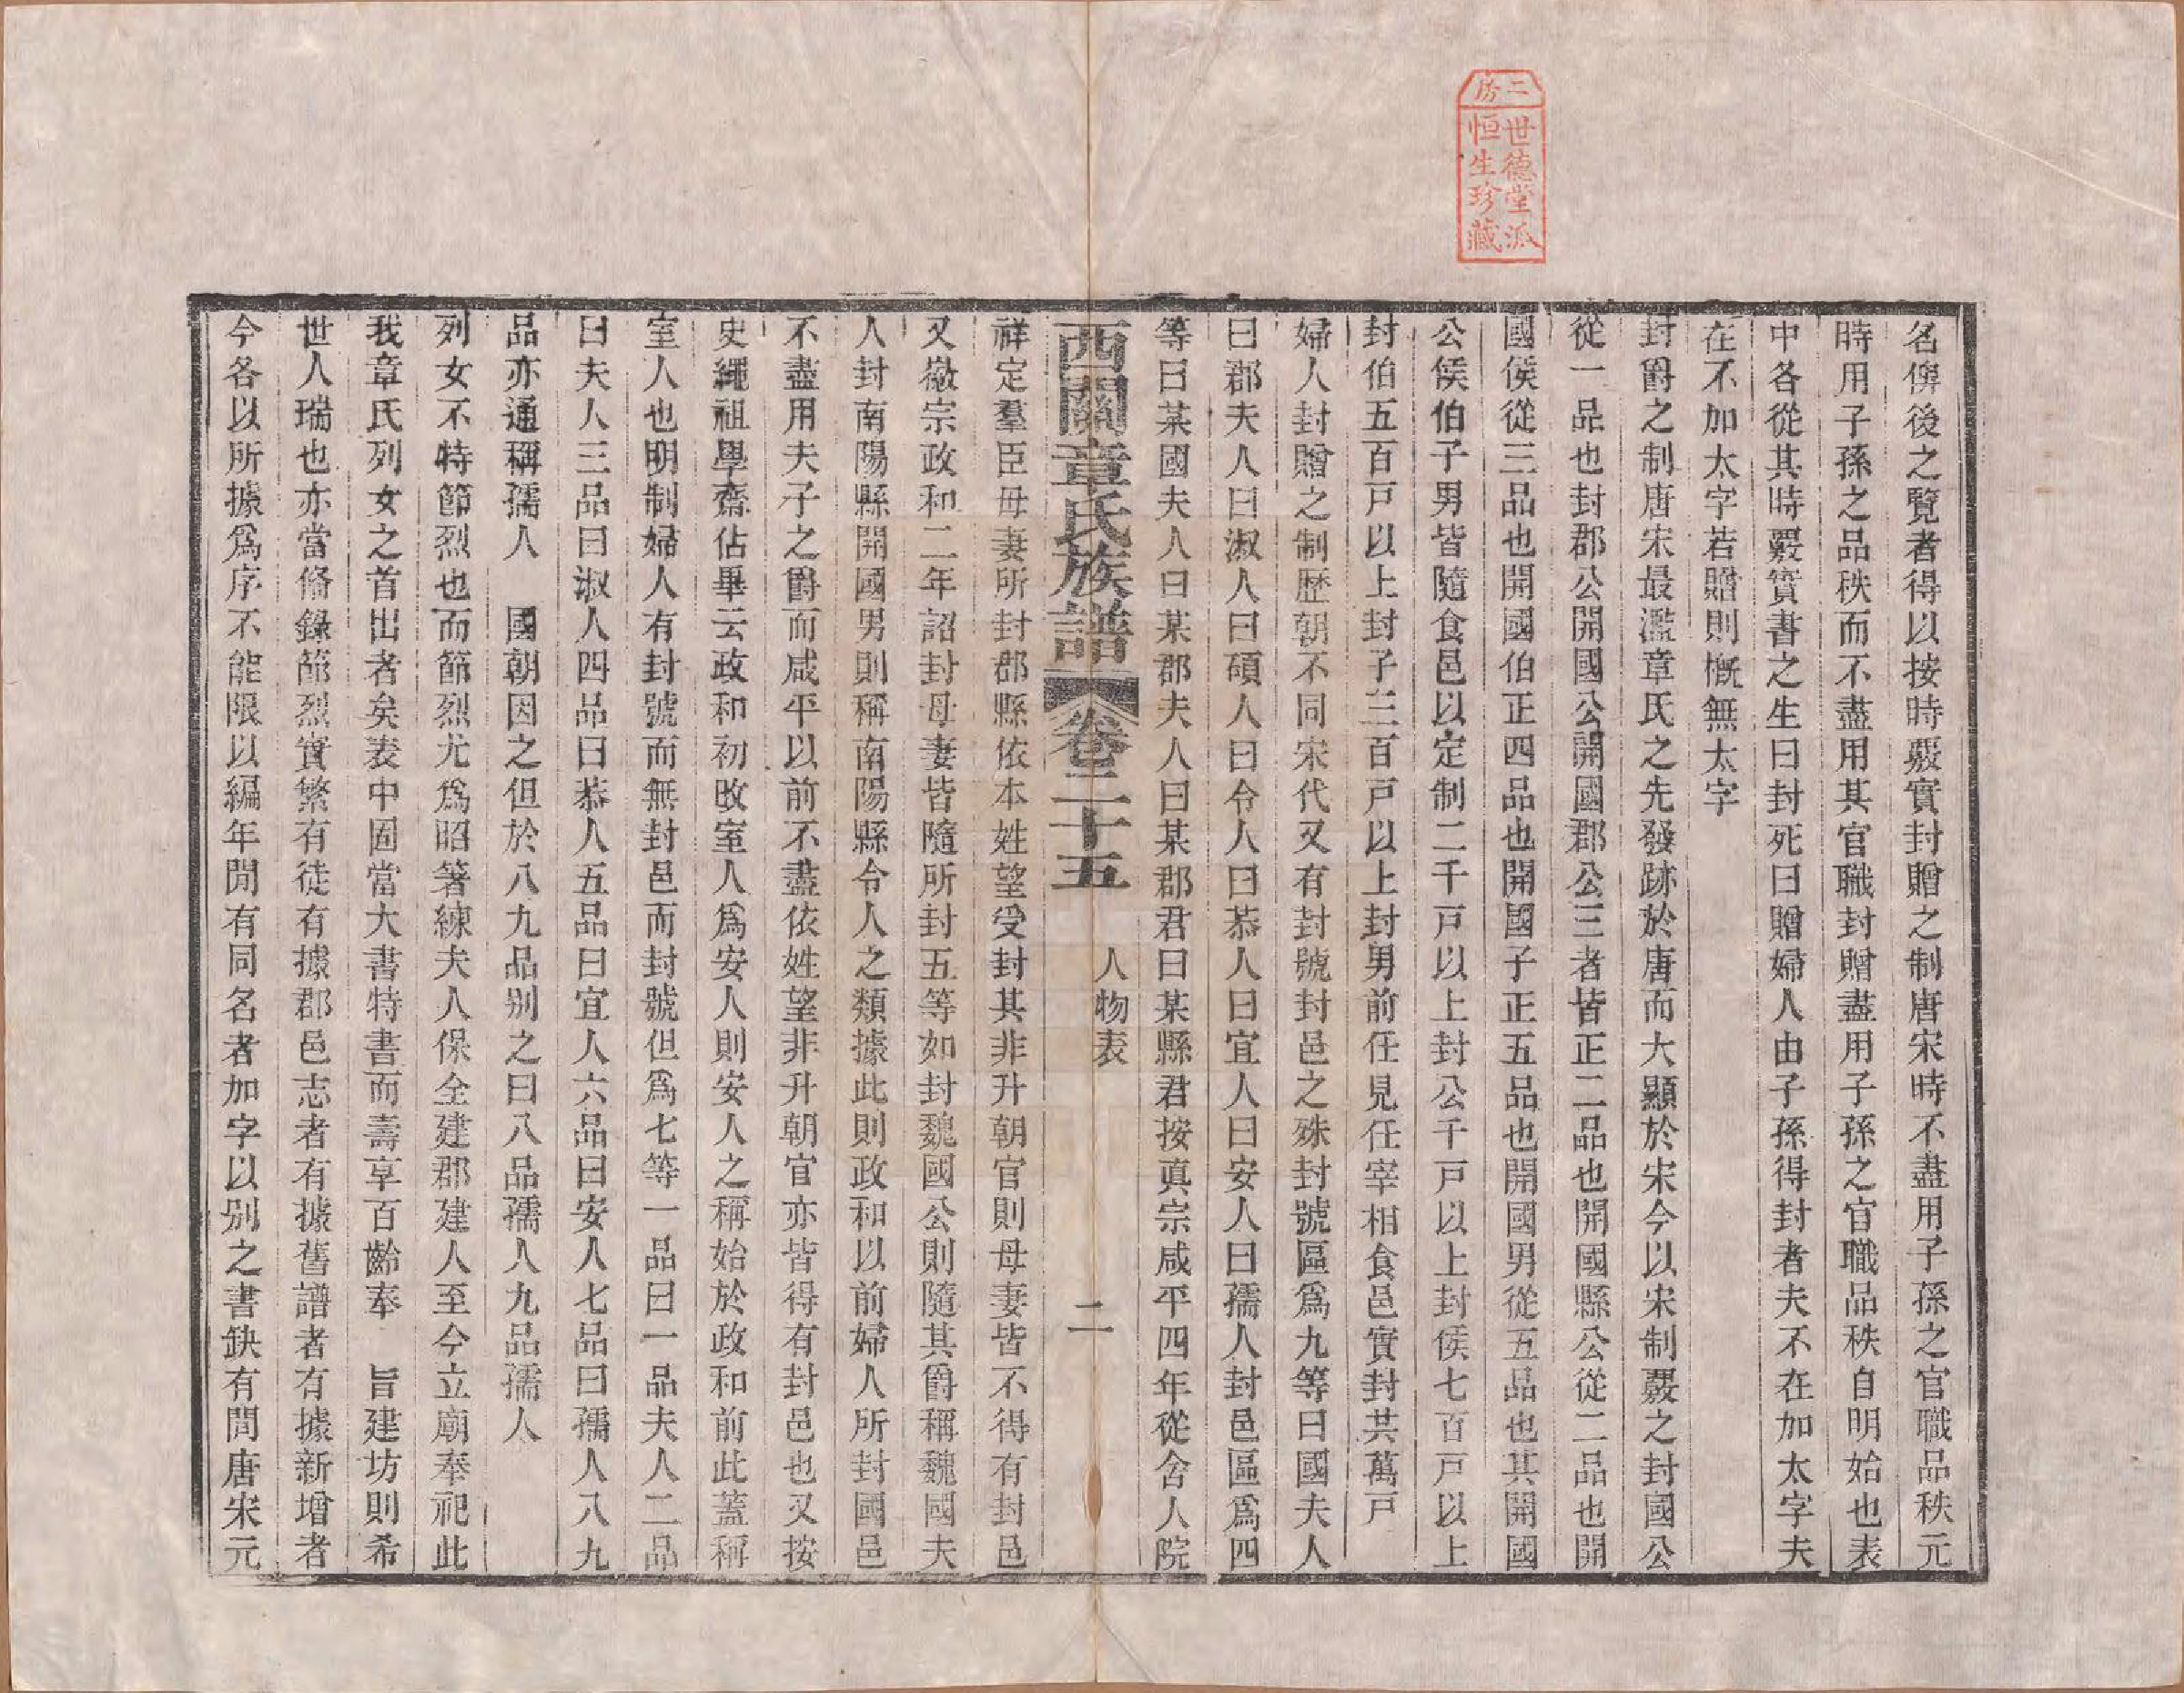 二房
世德堂派
恒生珍藏
名俾後之覽者得以按時覈實封贈之制唐宋時不盡用子孫之官職品秩元
時用子孫之品秩而不盡用其官職封贈盡用子孫之官職品秩自明始也表
中各從其時覈實書之生曰封死曰贈婦人由子孫得封者夫不在加太字夫
在不加太字若贈則慨無太字
封爵之制唐宋最濫章氏之先發跡於唐而大顯於宋今以宋制覈之封國公
從一品也封郡公開國公開國郡公三者皆正二品也開國縣公從二品也開
國侯從三品也開國伯正四品也開國子正五品也開國男從五品也其開國
公侯伯子男皆隨食邑以定制二千戸以上封公千戸以上封侯七百戸以上
封伯五百戸以上封子三百戸以上封男前任見任宰相食邑實封共萬戸
婦人封贈之制歷朝不同宋代又有封號封邑之殊封號區爲九等曰國夫人
曰郡夫人曰淑人曰碩人曰令人曰恭人曰宜人曰安人曰孺人封邑區爲四
等曰某國夫人曰某郡夫人曰某郡君曰某縣君按眞宗咸平四年從舍人院
西關章氏族譜 卷二十五 人物表 二
祥定羣臣母妻所封郡縣依本姓望受封其非升朝官則母妻皆不得有封邑
又徽宗政和二年詔封母妻皆隨所封五等如封魏國公則隨其爵稱魏國夫
人封南陽縣開國男則稱南陽縣令人之類據此則政和以前婦人所封國邑
不盡用夫子之爵而咸平以前不盡依姓望非升朝官亦皆得有封邑也又按
史繩祖學齋佔畢云政和初改室人爲安人則安人之稱始於政和前此蓋稱
室人也明制婦人有封號而無封邑而封號但爲七等一品曰一品夫人二品
曰夫人三品曰淑人四品曰恭人五品曰宜人六品曰安人七品曰孺人八九
品亦通稱孺人　國朝因之但於八九品别之曰八品孺人九品孺人
列女不特節烈也而節烈尤爲昭箸練夫人保全建郡建人至今立廟奉祀此
我章氏列女之首出者矣表中固當大書特書而壽享百齡奉　旨建坊則希
世人瑞也亦當脩錄節烈實繁有徒有據郡邑志者有據舊譜者有據新增者
今各以所據爲序不能限以編年閒有同名者加字以别之書缺有間唐宋元